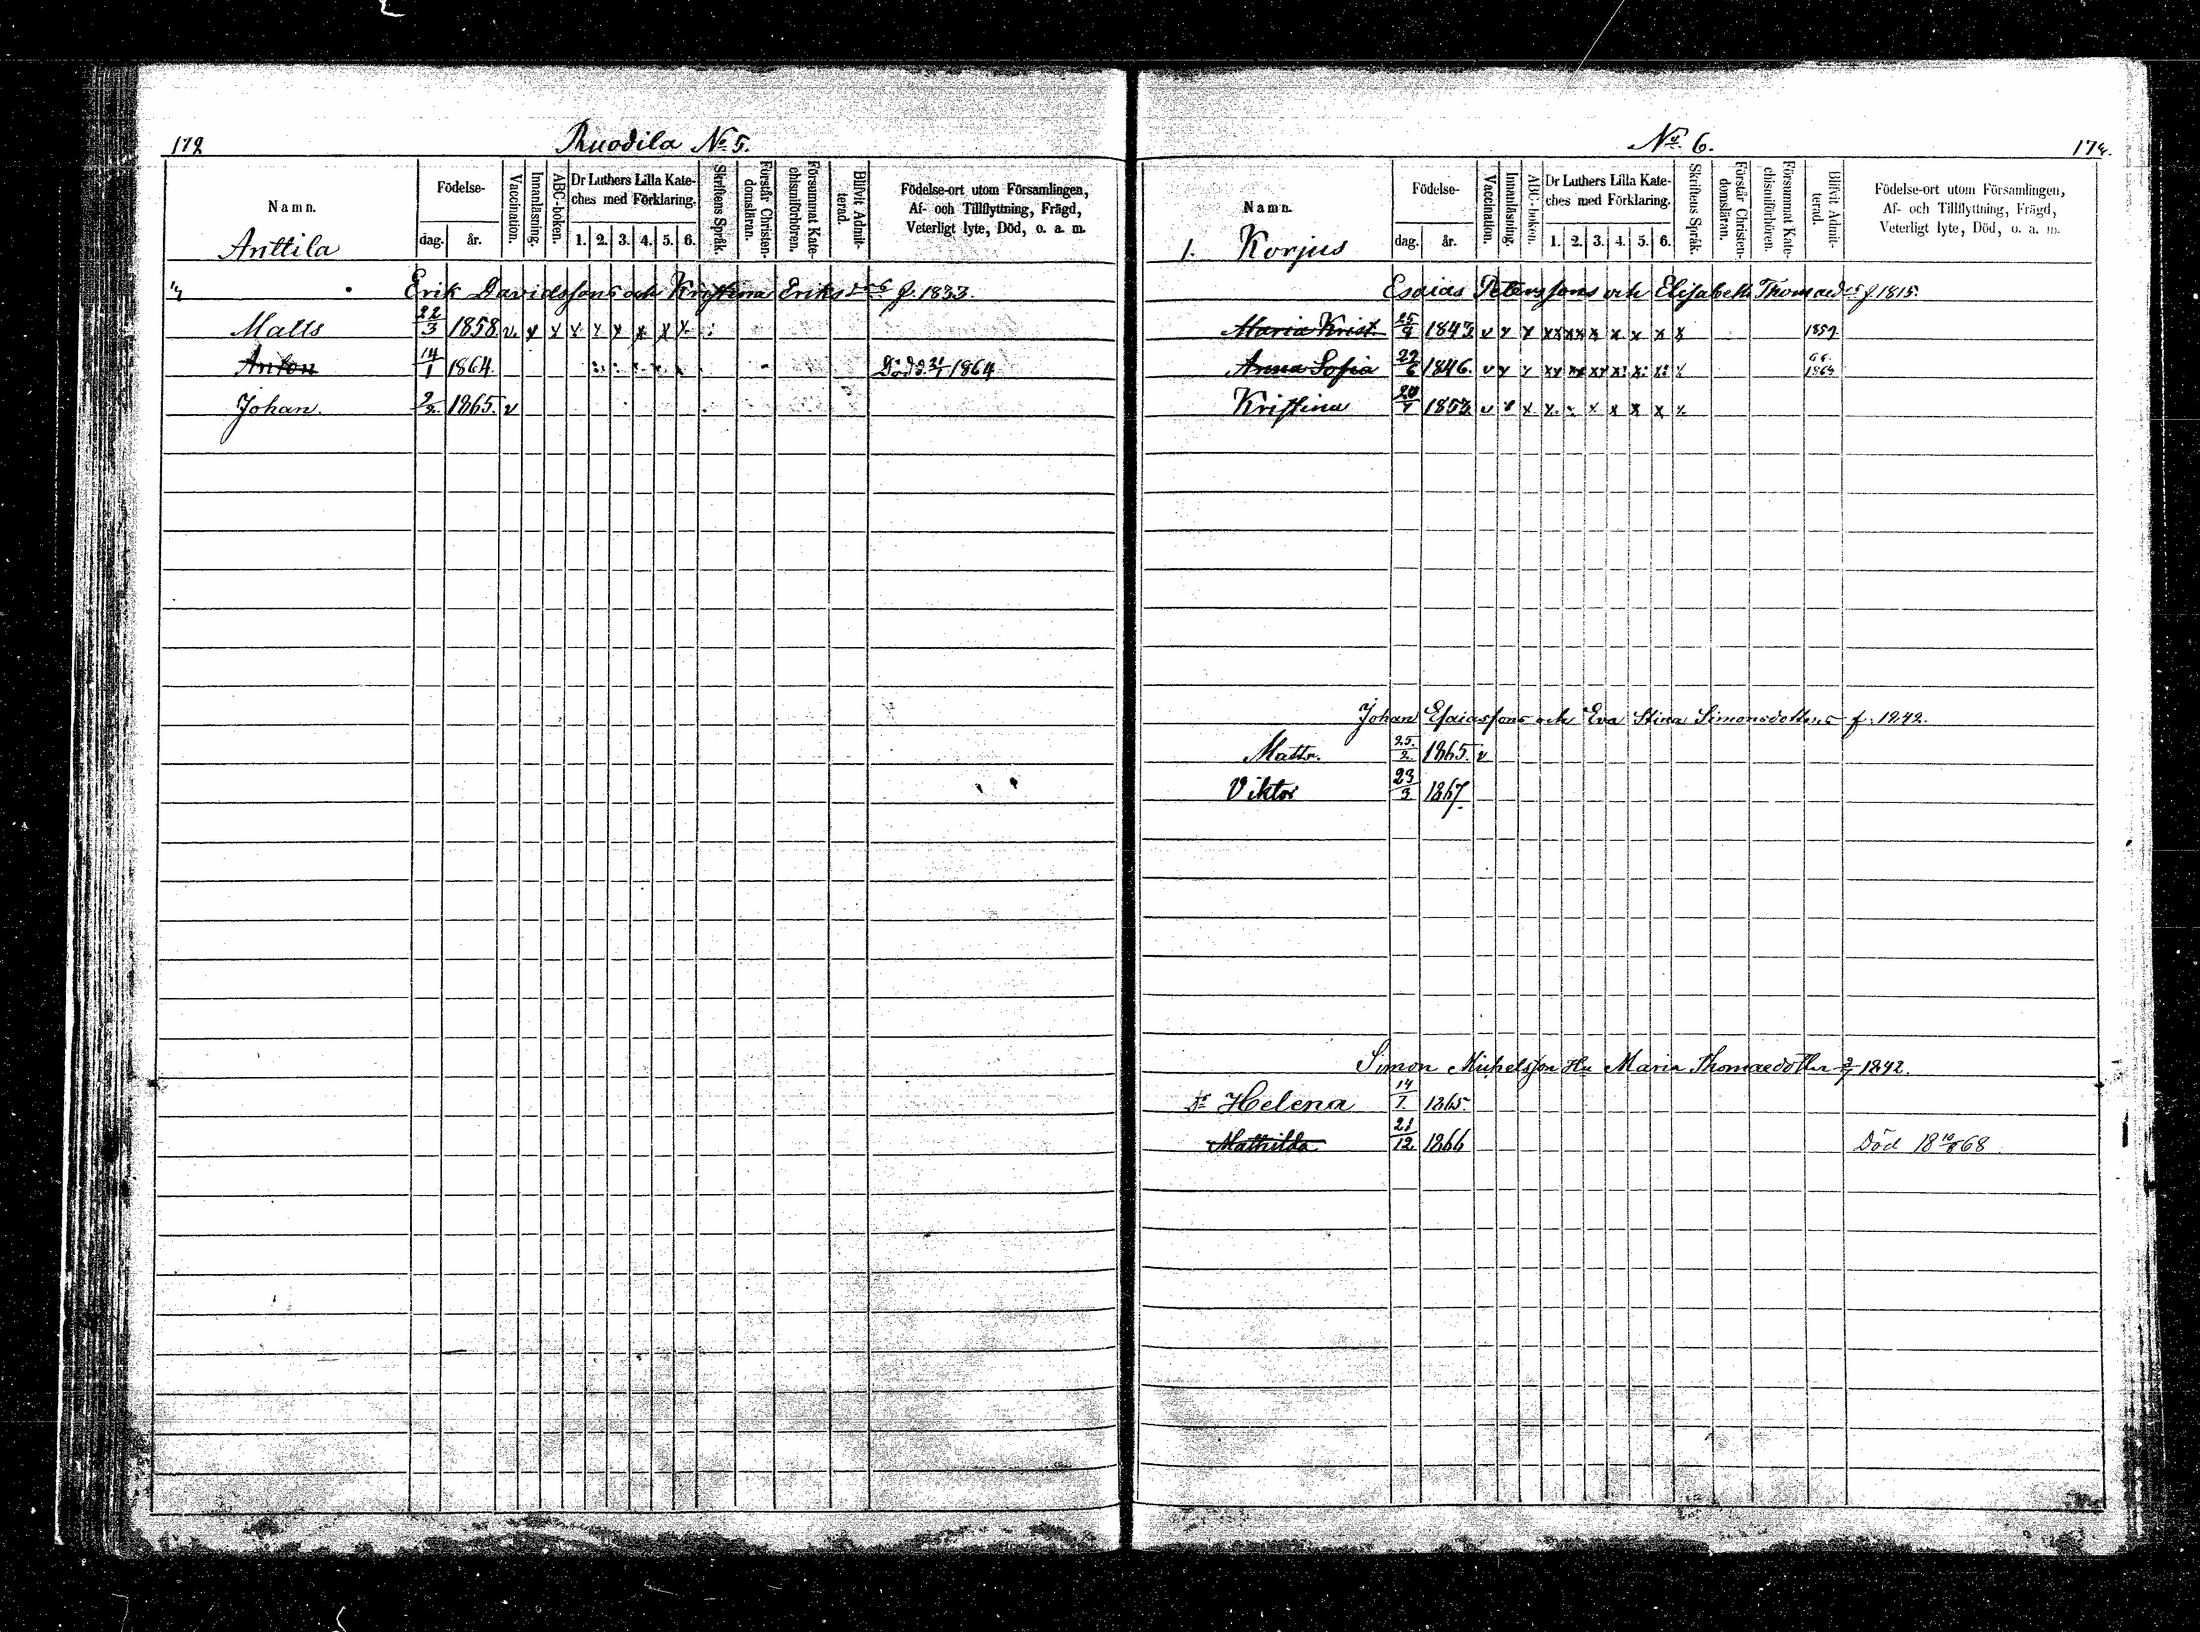 172
Ruodila No 5.
Namn.
Födelse-
dag.
år.
Vaccination.
Innanläsning.
ABC-boken.
Dr Luthers Lilla Kate-
ches med Förklaring.
1. 2. 3. 4. 5. 6.
Skriftens Språk.
Förstår Christen-
domsläran.
Försummat Kate-
chismiförhören.
Blifvit Admit-
terad.
Födelse-ort utom Församlingen,
Af- och Tillflyttning, Frägd,
Veterligt lyte, Död, o. a. m.
Anttila
Erik Davidssons och Kristina Eriks f. 1833.
Matts 22/3 1858 v. x x x x x x x x
Anton 14/1 1864. Död d. 21/1 1864
Johan. 2/2. 1865. v
No 6.
174.
Namn.
Födelse-
dag.
år.
Vaccination.
Innanläsning.
ABC-boken.
Dr Luthers Lilla Kate-
ches med Förklaring.
1. 2. 3. 4. 5. 6.
Skriftens Språk.
Förstår Christen-
domsläran.
Försummat Kate-
chismiförhören.
Blifvit Admit-
terad.
Födelse-ort utom Församlingen,
Af- och Tillflyttning, Frägd,
Veterligt lyte, Död, o. a. m.
1. Korjus
Esaias Peterssons och Elisabeth Thomaed f. 1815.
Maria Krist. 1843 v x x xx xx x x x x x 1859.
Anna Sofia 22/6 1846. v x x
Kristina 1853 v x x x
Johan Esaiassons och Eva Stina Simonsdotters f. 1842.
Matts. 25./2. 1865. v
Viktor 23/3 1867.
Simon Michelsson Hu Maria Thomaedotter 1842.
Dr Helena 14/7. 1865.
Mathilda 21/12 1866 Död 18 68